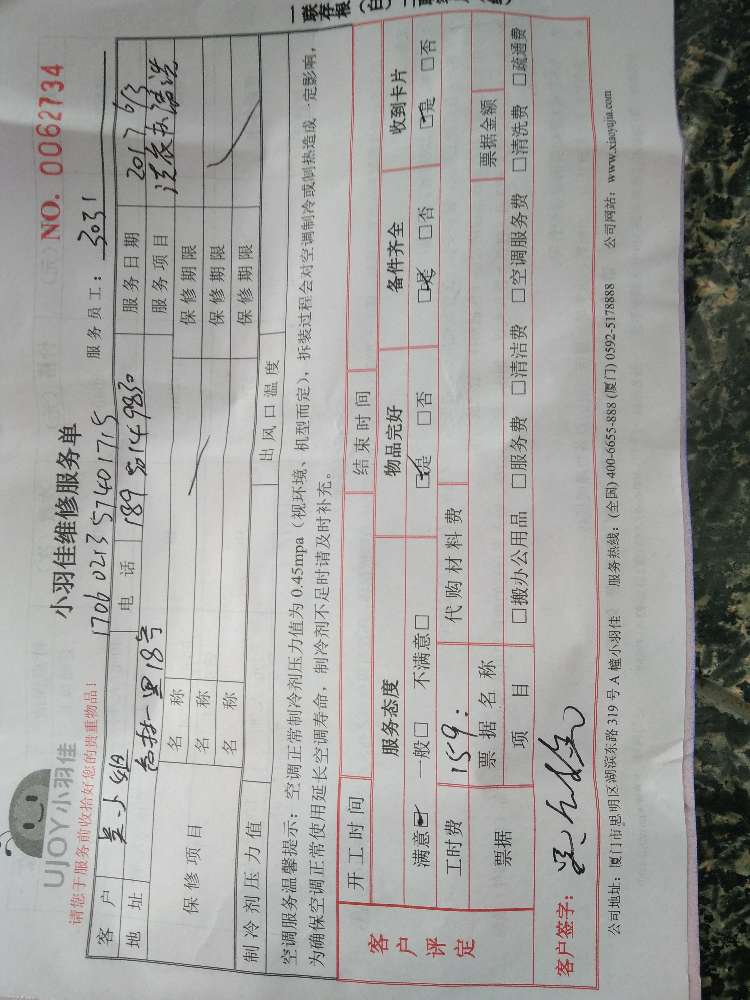 一联存根（白）
UJOY小羽佳
小羽佳维修服务单
NO. 0062734
请您于服务前收拾好您的贵重物品!
17060213571401715
服务员工: 3031
客户 吴小姐 电话 服务日期 2017 6/3
地址 一里18号 服务项目 洗衣机清洗
保修项目 名称 保修期限
名称 保修期限
名称 保修期限
制冷剂压力值 出风口温度
空调服务温馨提示: 空调正常制冷剂压力值为 0.45mpa（视环境、机型而定），拆装过程会对空调制冷或制热造成一定影响，
为确保空调正常使用延长空调寿命，制冷剂不足时请及时补充。
客户评定
开工时间 结束时间
服务态度 物品完好 备件齐全 收到卡片
满意☑ 一般□ 不满意□ ☑是 □否 ☑是 □否 ☑是 □否
工时费 159: 代购材料费
票据 票据名称 票据金额
项目 □搬办公用品 □服务费 □清洁费 □空调服务费 □清洗费 □疏通费
客户签字:
公司地址: 厦门市思明区湖滨东路 319 号 A 幢小羽佳 服务热线: (全国) 400-6655-888 (厦门) 0592-5178888 公司网站: www.xiaoyujia.com